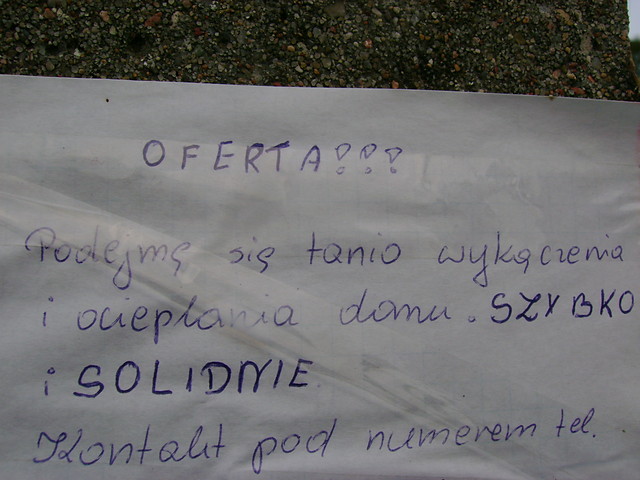 OFERTA!!!
Podejmę się tanio wykączenia
i ocieplania domu. SZYBKO
i SOLIDNIE.
Kontakt pod numerem tel.